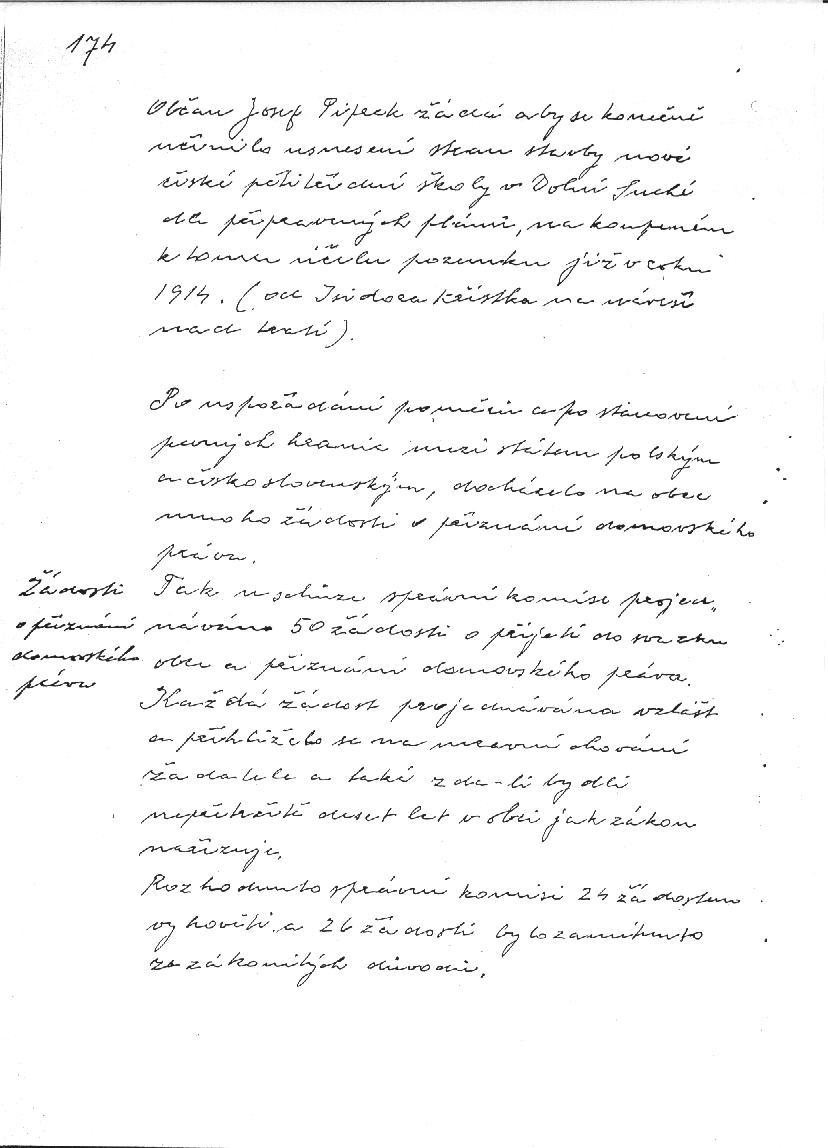 174
Občan Josef Pipeck žádá aby se konečně
učinilo usnesení stran stavby nové
české pětitřídní školy v Dolní Suché
dle připravených plánů, na koupeném
k tomu účelu pozemku již v roku
1914. (od Isidora Křístka na návrší
nad tratí).
Po uspořádání poměrů a po stanovení
pevných hranic mezi státem polským
a československým, docházelo na obec
mnoho žádostí o přiznání domovského
práva.
Žádosti
o přiznání
domovského
práva
Tak u schůze správní komise projed„
náváno 50 žádostí o přijetí do svazku
obce a přiznání domovského práva.
Každá žádost projednávána vzlášť
a přihlíželo se na mravní chování
žadatele a také zda-li bydlí
nepřetržitě deset let v obci jak zákon
nařizuje.
Rozhodnuto správní komisí 24 žádostem
vyhověti a 26 žádostí bylo zamítnuto
ze zákonitých důvodů.